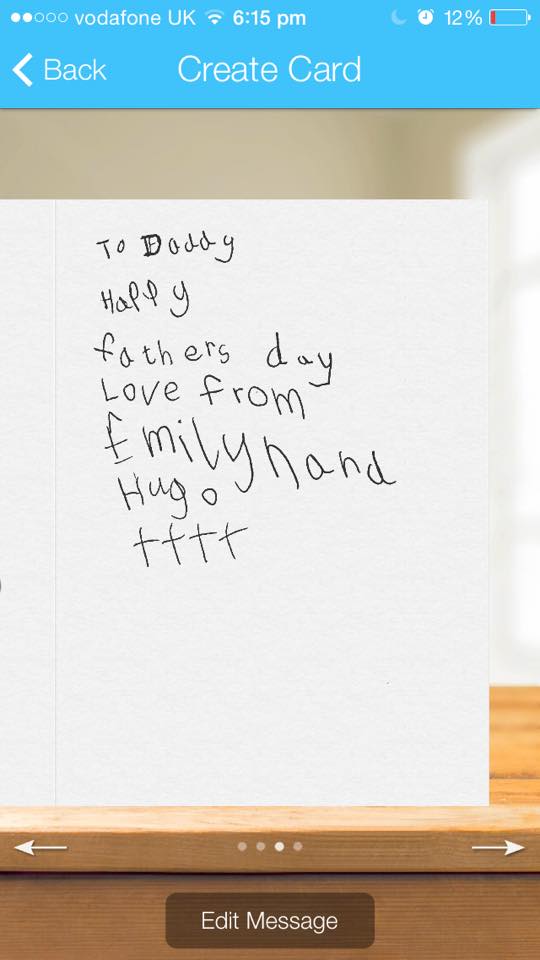 vodafone UK 6:15 pm 12%
Back Create Card
To Daddy
Happy
fathers day
Love from
Emily nand
Hugo
tttt
Edit Message